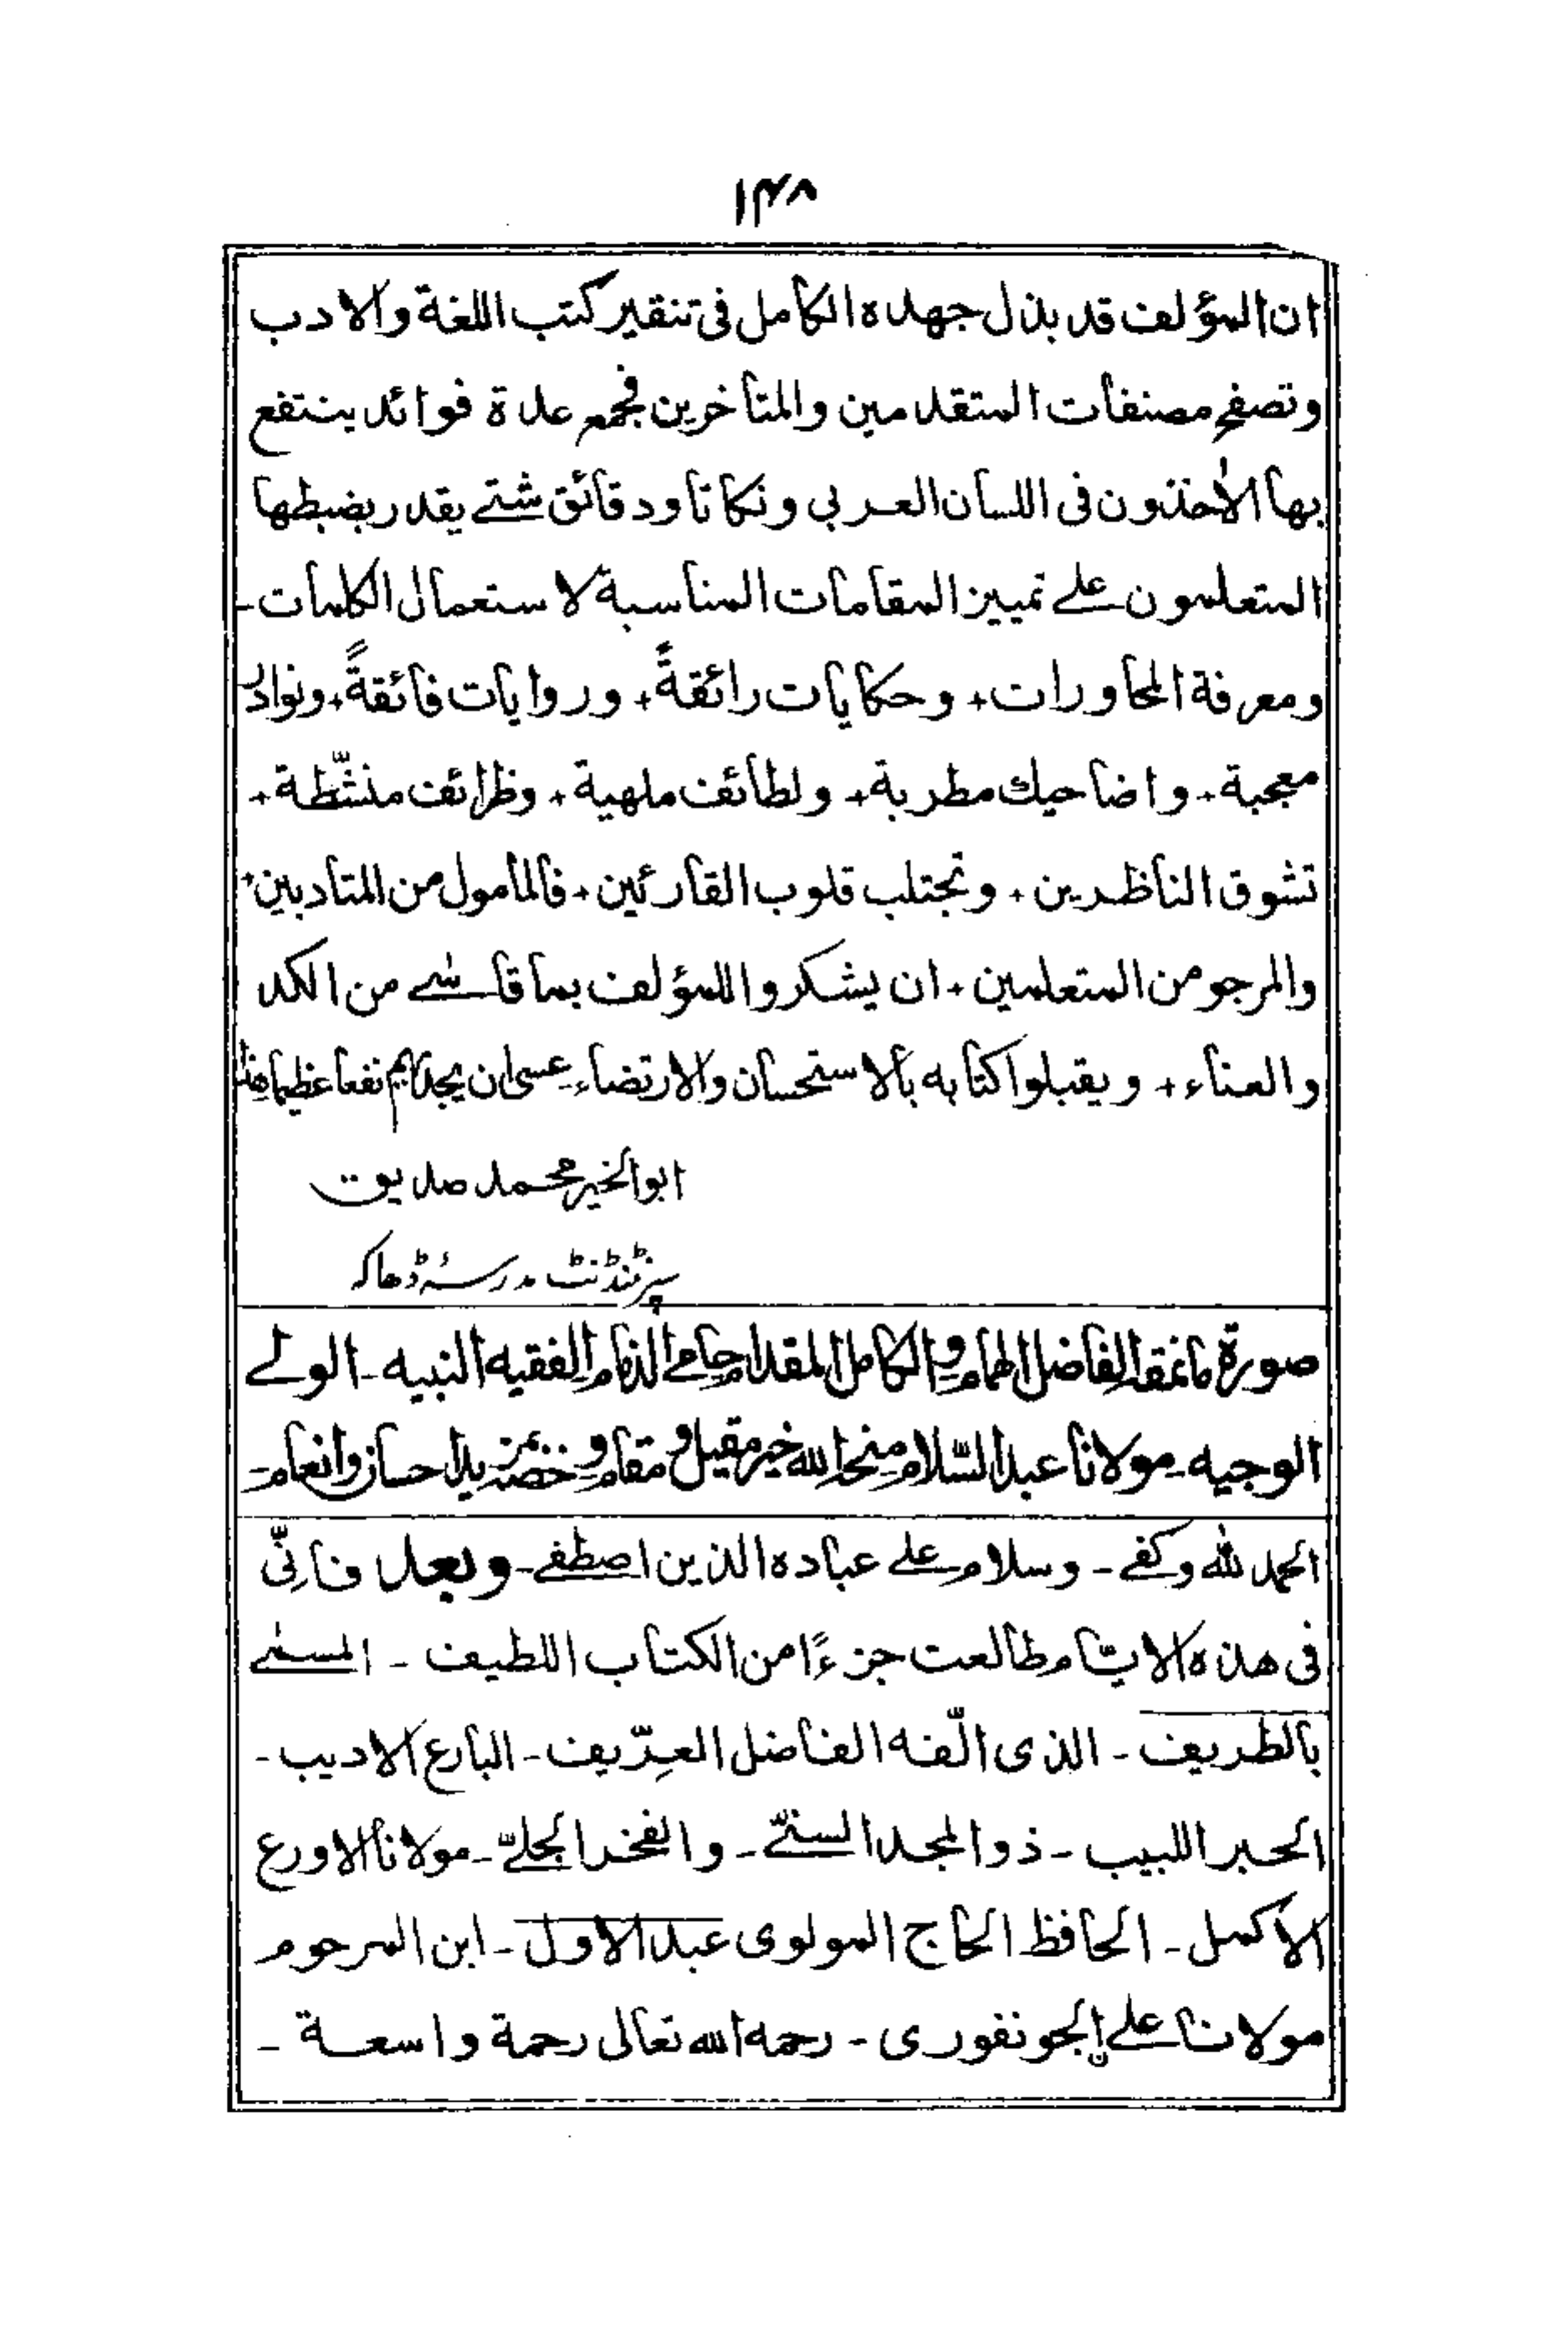 ۱۴۸
ان المؤلف قد بذل جهده الكامل فى تنقير كتب اللغة والادب
وتصفح مصنفات المتقدمين والمتأخرين فجمع عدة فوائد ينتفع
بها الآخذون فى اللسان العربي ونكاتا ودقائق شتے يقدر بضبطها
المتعلمون علے تمييز المقامات المناسبة لاستعمال الكلمات-
ومعرفة المحاورات+ وحكايات رائقةً+ وروايات فائقةً+ ونوادر
معجبة+ واضاحيك مطربة+ ولطائف ملهية+ وظرائف منشّطة+
تشوق الناظرين+ وتجتلب قلوب القارئين+ فالمأمول من المتادبين+
والمرجو من المتعلمين+ ان يشكروا للمؤلف بما قاسٰے من الكد
والعناء+ ويقبلوا كتابه بالاستحسان والارتضاء عسى ان يجديهم نفعا عظيما فقط
ابوالخير محمد صديق
سپرنٹنڈنٹ مدرسۂ ڈھاکہ
صورة ما نمقه الفاضل الهمام والكامل المقدام حامي الذمام الفقيه النبيه- الولے
الوجيه- مولانا عبد السّلام منحه الله خير مقيل ومقام وخصه بمزيد احسان وانعام-
الحمد لله وكفے- وسلام علے عباده الذين اصطفے- وبعد فانّى
فى هذه الايّام طالعت جزءًا من الكتاب اللطيف- المسمٰے
بالطريف- الذى الّفه الفاضل العِرّيف- البارع الاديب-
الحبر اللبيب- ذو المجد السنّے- والفخر الجلّے- مولانا الاورع
الاكمل- الحافظ الحاج المولوى عبد الاول- ابن المرحوم
مولانا علے الجونفورى- رحمه الله تعالى رحمة واسعة-